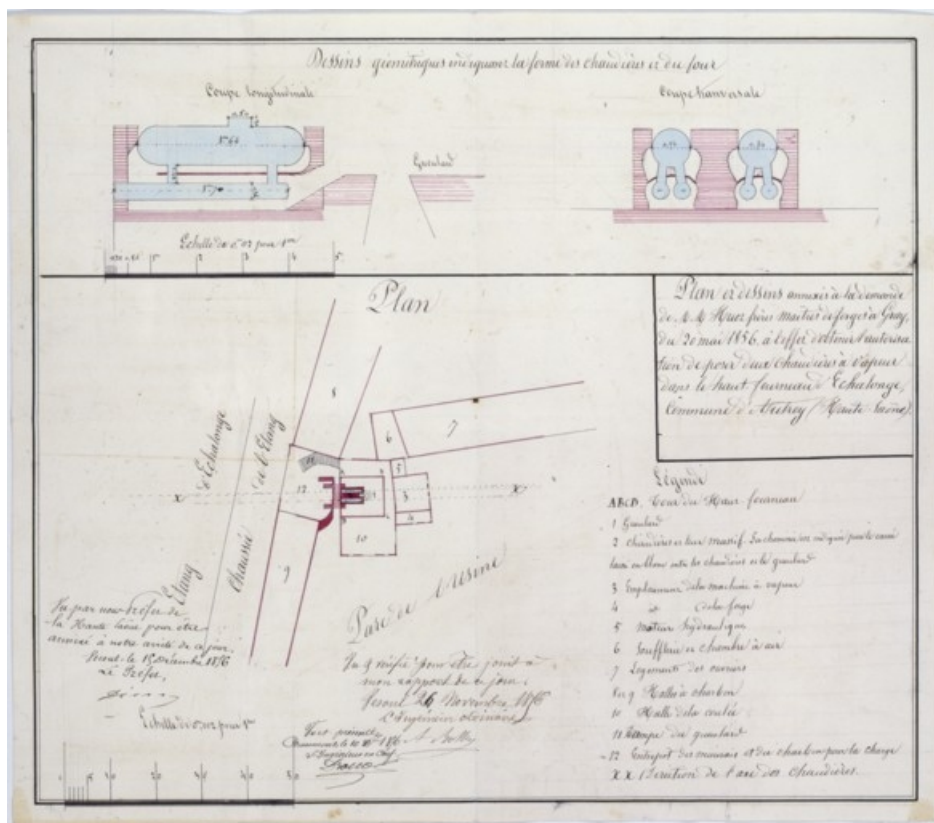 Dessins géométriques indiquant la forme des chaudières et du four
Coupe longitudinale
Coupe transversale
Gueulard
Echelle de 0,02 pour 1m
1 2 3 4 5
Plan
Plan et dessins annexés à la demande
de M.M. frères maîtres de forges à Gray,
du 20 mai 1856, à l'effet d'obtenir l'autorisa
tion de poser deux chaudières à vapeur
dans le haut fourneau d'Echalonge,
Commune d'Autrey (Haute Saône).
8
6
7
5
11
12
3
4
X
X
10
9
Etang d'Echalonge
Chaussée de l'Etang
Parc de l'Usine
Légende
ABCD. Tour du Haut fourneau
1 Gueulard
2 Chaudières et leur massif. La cheminée est indiquée par le carré
laissé en blanc entre les chaudières et le gueulard
3 Emplacement de la machine à vapeur
4 id de la forge
5 Moteur hydraulique
6 Soufflerie et chambre à air
7 Logements des ouvriers
8 et 9 Halles à charbon
10 Halle de la coulée
11 Rampe du gueulard
12 Entrepôt des minerais et du charbon pour la charge
XX Direction de l'axe des chaudières.
Vu par nous Préfet de
la Haute Saône pour être
annexé à notre arrêté de ce jour.
Vesoul le 15 Décembre 1856
Le Préfet,
Vu & vérifié pour être joint à
mon rapport de ce jour.
Vesoul 26 Novembre 1856
L'Ingénieur ordinaire
Vu et présenté
L'Ingénieur en Chef
Echelle de 0,002 pour 1m
10 20 30 40 50